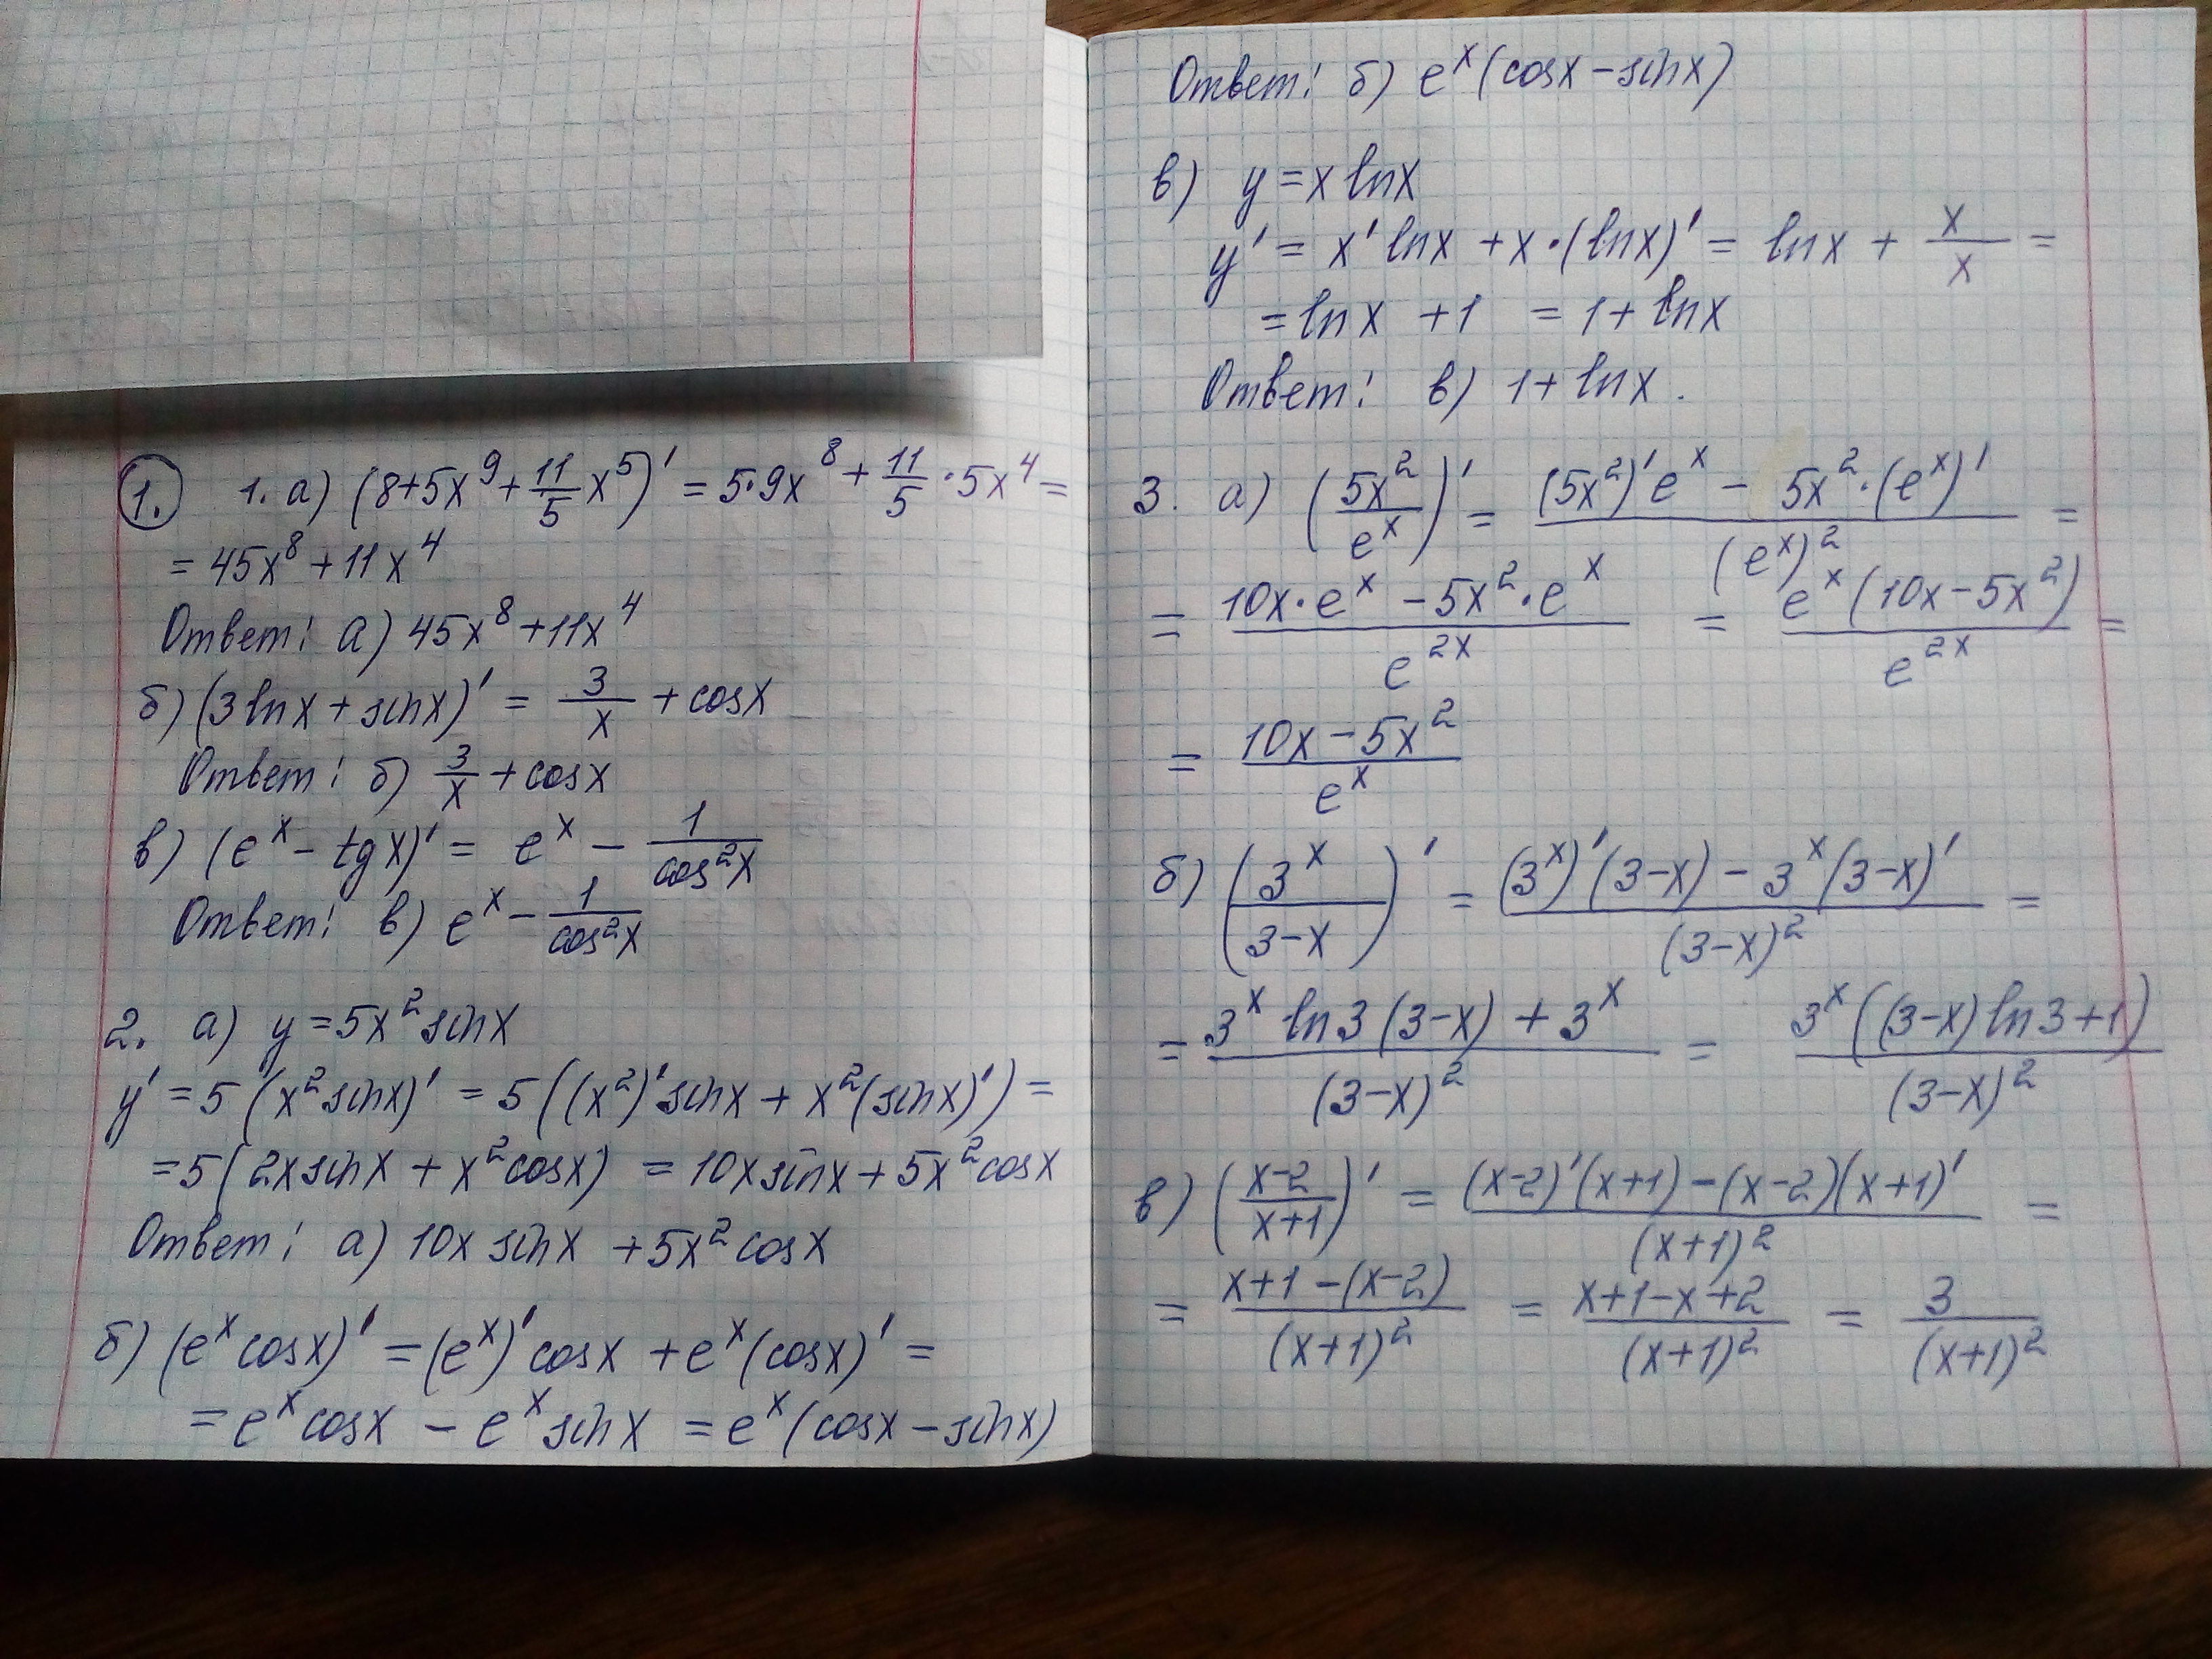 1. 1. а) (8+5x⁹+11/5 x⁵)' = 5·9x⁸ + 11/5 ·5x⁴ =
= 45x⁸ + 11x⁴
Ответ: а) 45x⁸+11x⁴
б) (3lnx + sinx)' = 3/x + cosx
Ответ: б) 3/x + cosx
в) (eˣ - tgx)' = eˣ - 1/cos²x
Ответ: в) eˣ - 1/cos²x
2. а) y = 5x² sinx
y' = 5(x² sinx)' = 5((x²)' sinx + x²(sinx)') =
= 5(2x sinx + x² cosx) = 10x sinx + 5x² cosx
Ответ: а) 10x sinx + 5x² cosx
б) (eˣ cosx)' = (eˣ)' cosx + eˣ(cosx)' =
= eˣ cosx - eˣ sinx = eˣ(cosx - sinx)
Ответ: б) eˣ(cosx - sinx)
в) y = x lnx
y' = x' lnx + x·(lnx)' = lnx + x/x =
= lnx + 1 = 1 + lnx
Ответ: в) 1 + lnx.
3. а) (5x²/eˣ)' = ((5x²)' eˣ - 5x²·(eˣ)')/(eˣ)² =
= (10x·eˣ - 5x²·eˣ)/e²ˣ = eˣ(10x - 5x²)/e²ˣ =
= (10x - 5x²)/eˣ
б) (3ˣ/(3-x))' = ((3ˣ)'(3-x) - 3ˣ(3-x)')/(3-x)² =
= (3ˣ ln3 (3-x) + 3ˣ)/(3-x)² = 3ˣ((3-x) ln3 + 1)/(3-x)²
в) ((x-2)/(x+1))' = ((x-2)'(x+1) - (x-2)(x+1)')/(x+1)² =
= (x+1-(x-2))/(x+1)² = (x+1-x+2)/(x+1)² = 3/(x+1)²